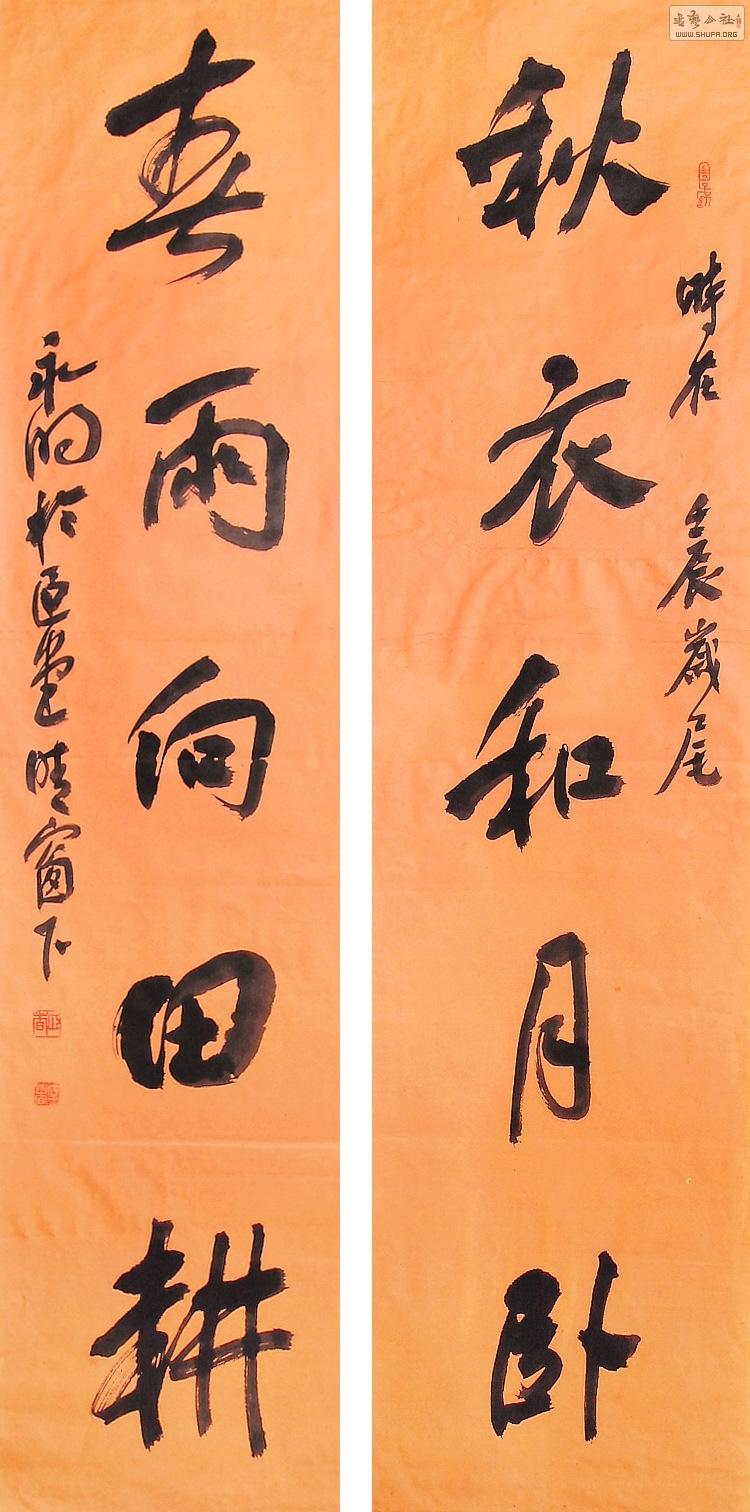 秋衣和月卧
時在 壬辰歲尾
春雨向田耕
永明於匠堂晴窗下
WWW.SHUFA.ORG